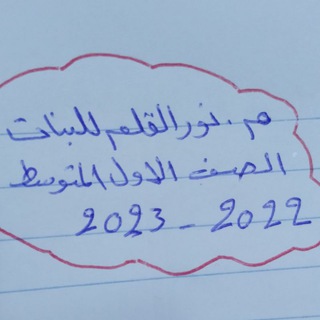 م. نور القلم للبنات
الصف الاول المتوسط
2022 - 2023